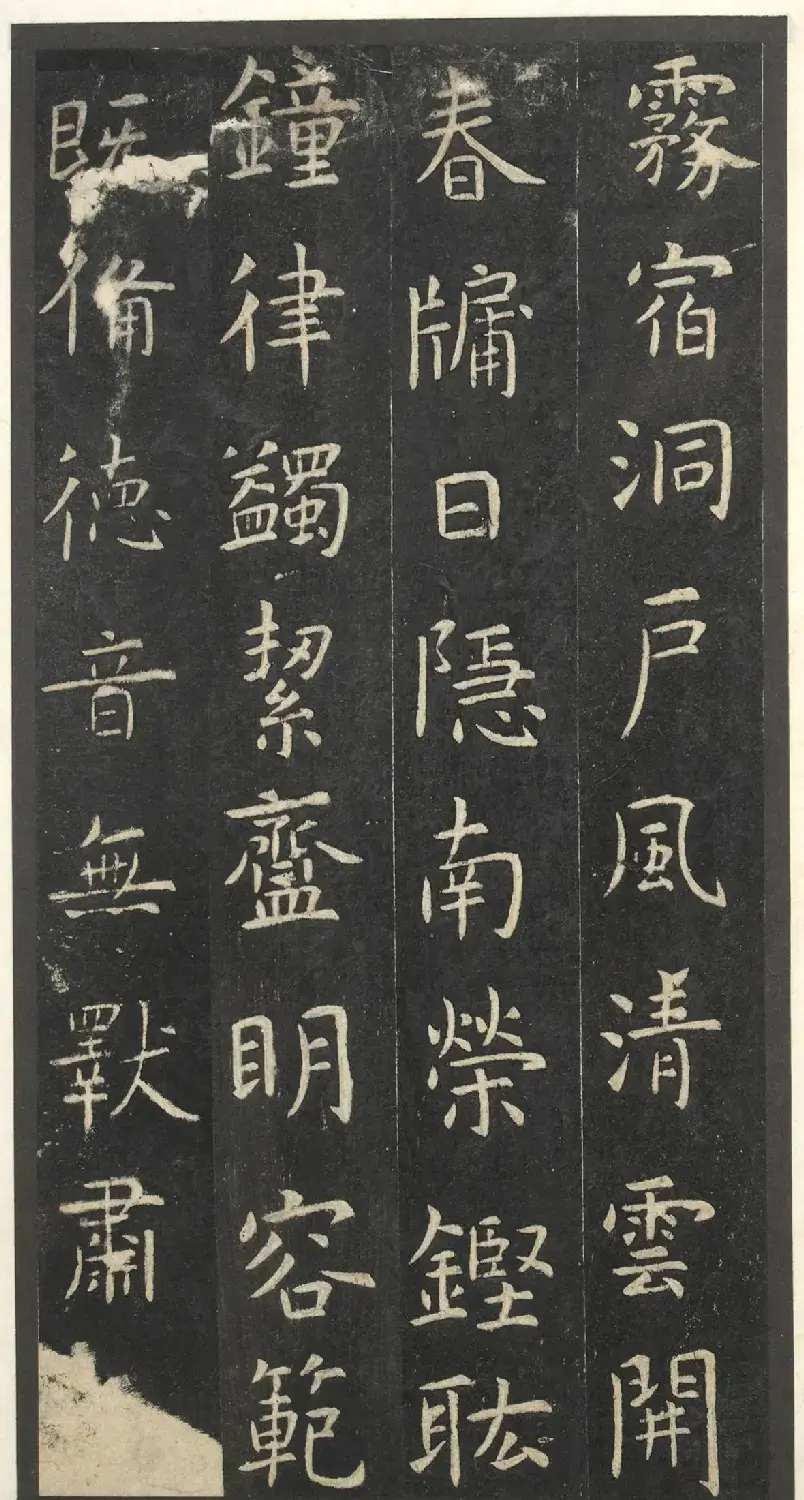 霧宿洞戶風清雲開
春牖日隱南榮鏗耾
鐘律蠲絜齍明容範
既備德音無斁肅